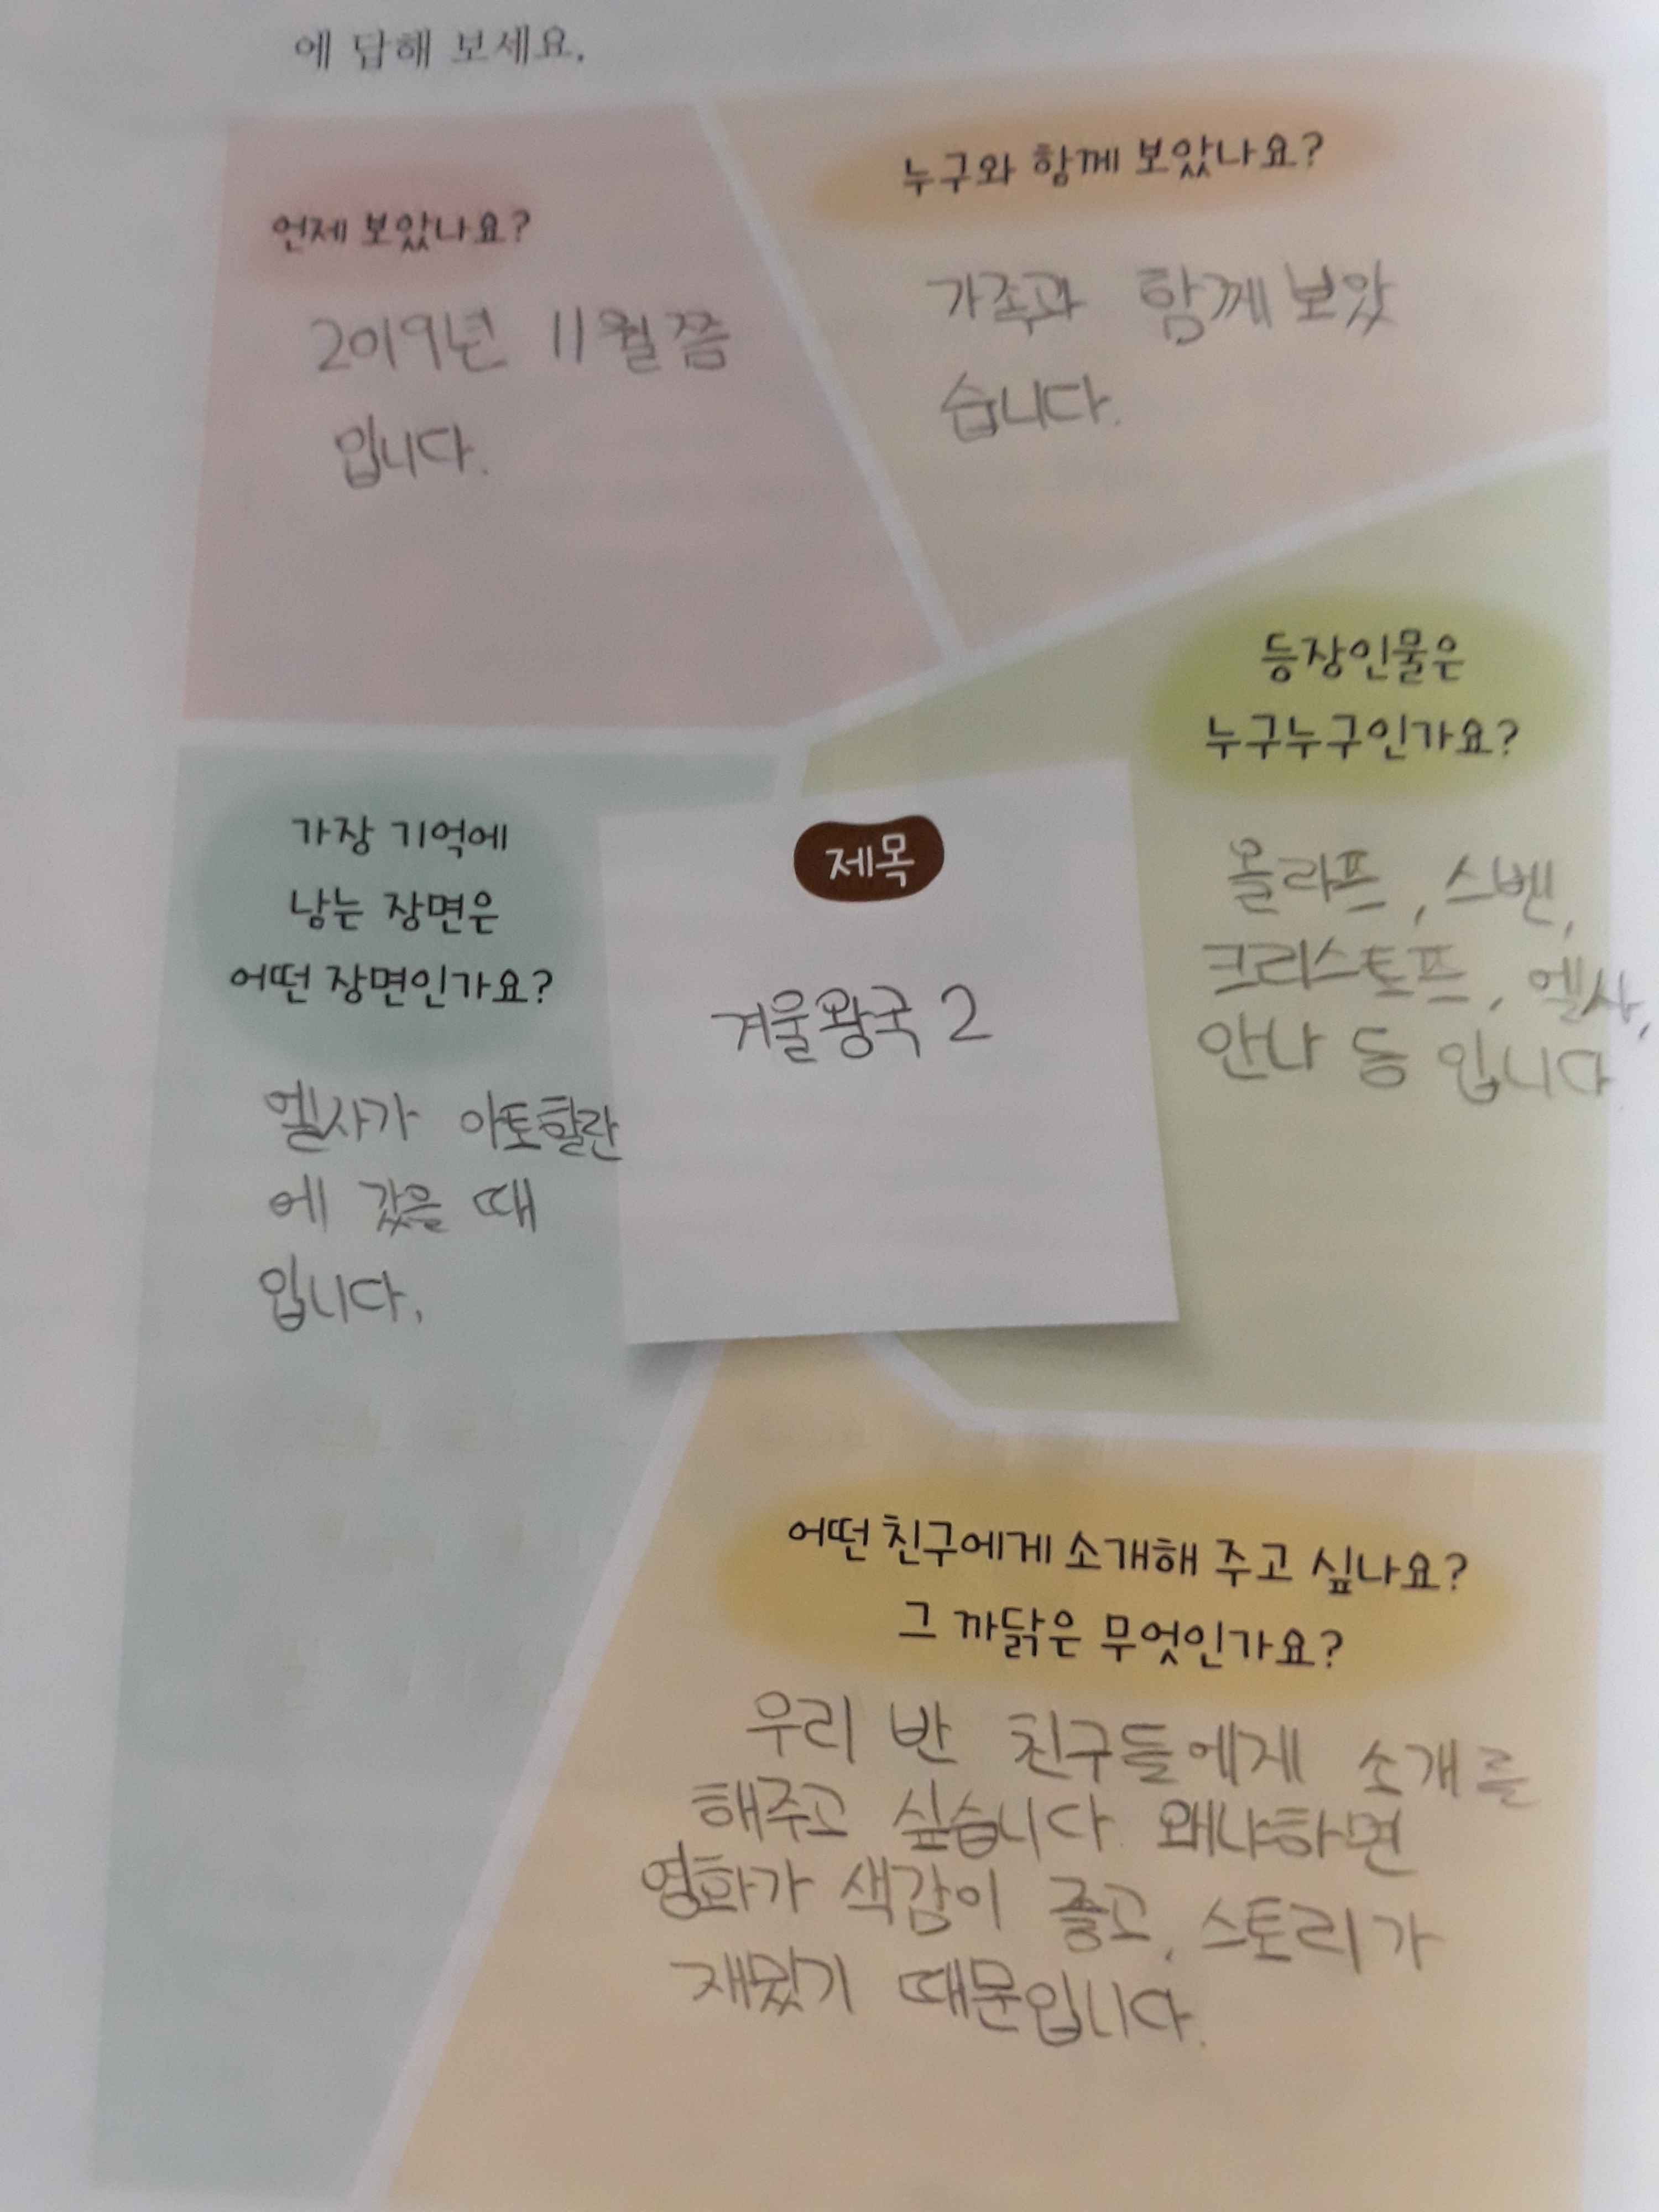 에 답해 보세요.
언제 보았나요?
2019년 11월쯤
입니다.
누구와 함께 보았나요?
가족과 함께 보았
습니다.
등장인물은
누구누구인가요?
올라프, 스벤,
크리스토프, 엘사,
안나 등 입니다
가장 기억에
남는 장면은
어떤 장면인가요?
엘사가 아토할란
에 갔을 때
입니다.
제목
겨울왕국 2
어떤 친구에게 소개해 주고 싶나요?
그 까닭은 무엇인가요?
우리 반 친구들에게 소개를
해주고 싶습니다. 왜냐하면
영화가 색감이 좋고, 스토리가
재밌기 때문입니다.